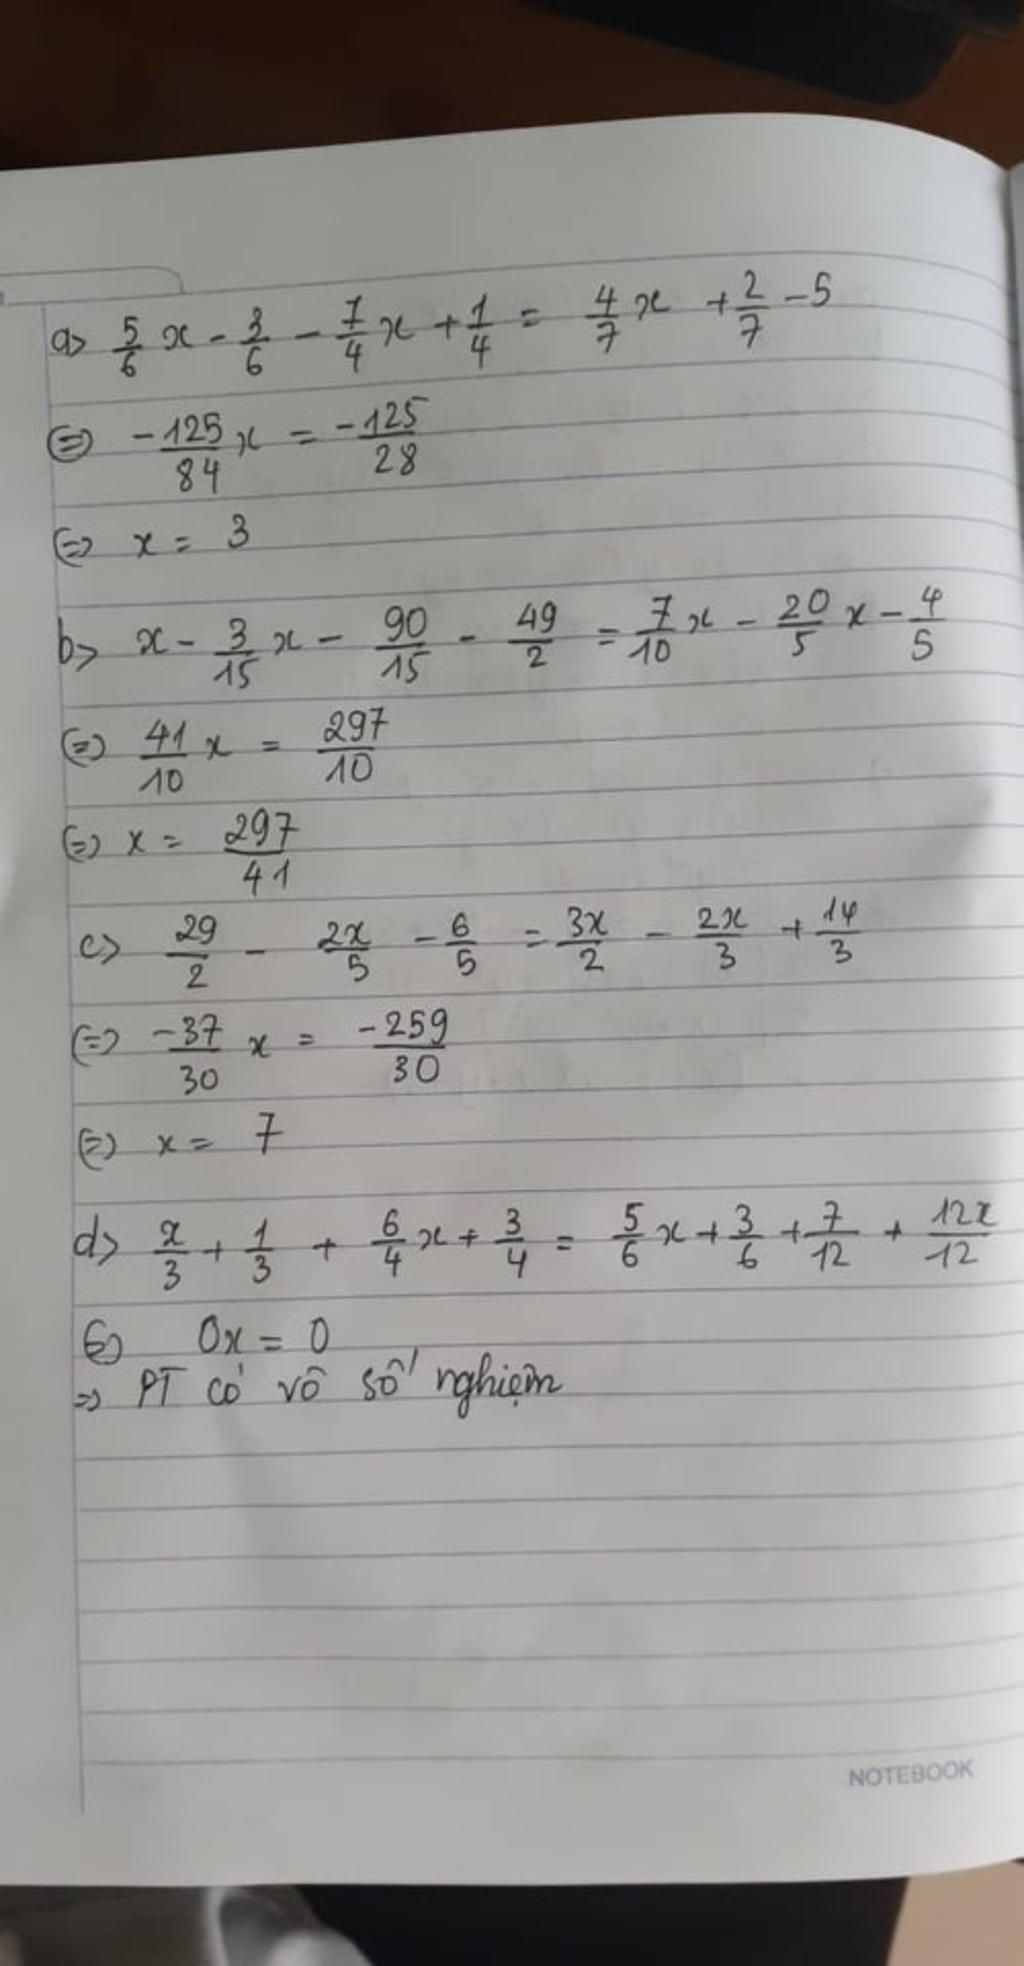 a> 5/6 x - 3/6 - 7/4 x + 1/4 = 4/7 x + 2/7 - 5
(=) -125/84 x = -125/28
(=) x = 3
b> x - 3/15 x - 90/15 - 49/2 = 7/10 x - 20/5 x - 4/5
(=) 41/10 x = 297/10
(=) x = 297/41
c> 29/2 - 2x/5 - 6/5 = 3x/2 - 2x/3 + 14/3
(=) -37/30 x = -259/30
(=) x = 7
d> x/3 + 1/3 + 6/4 x + 3/4 = 5/6 x + 3/6 + 7/12 + 12x/12
(=) 0x = 0
=> PT có vô số nghiệm
NOTEBOOK